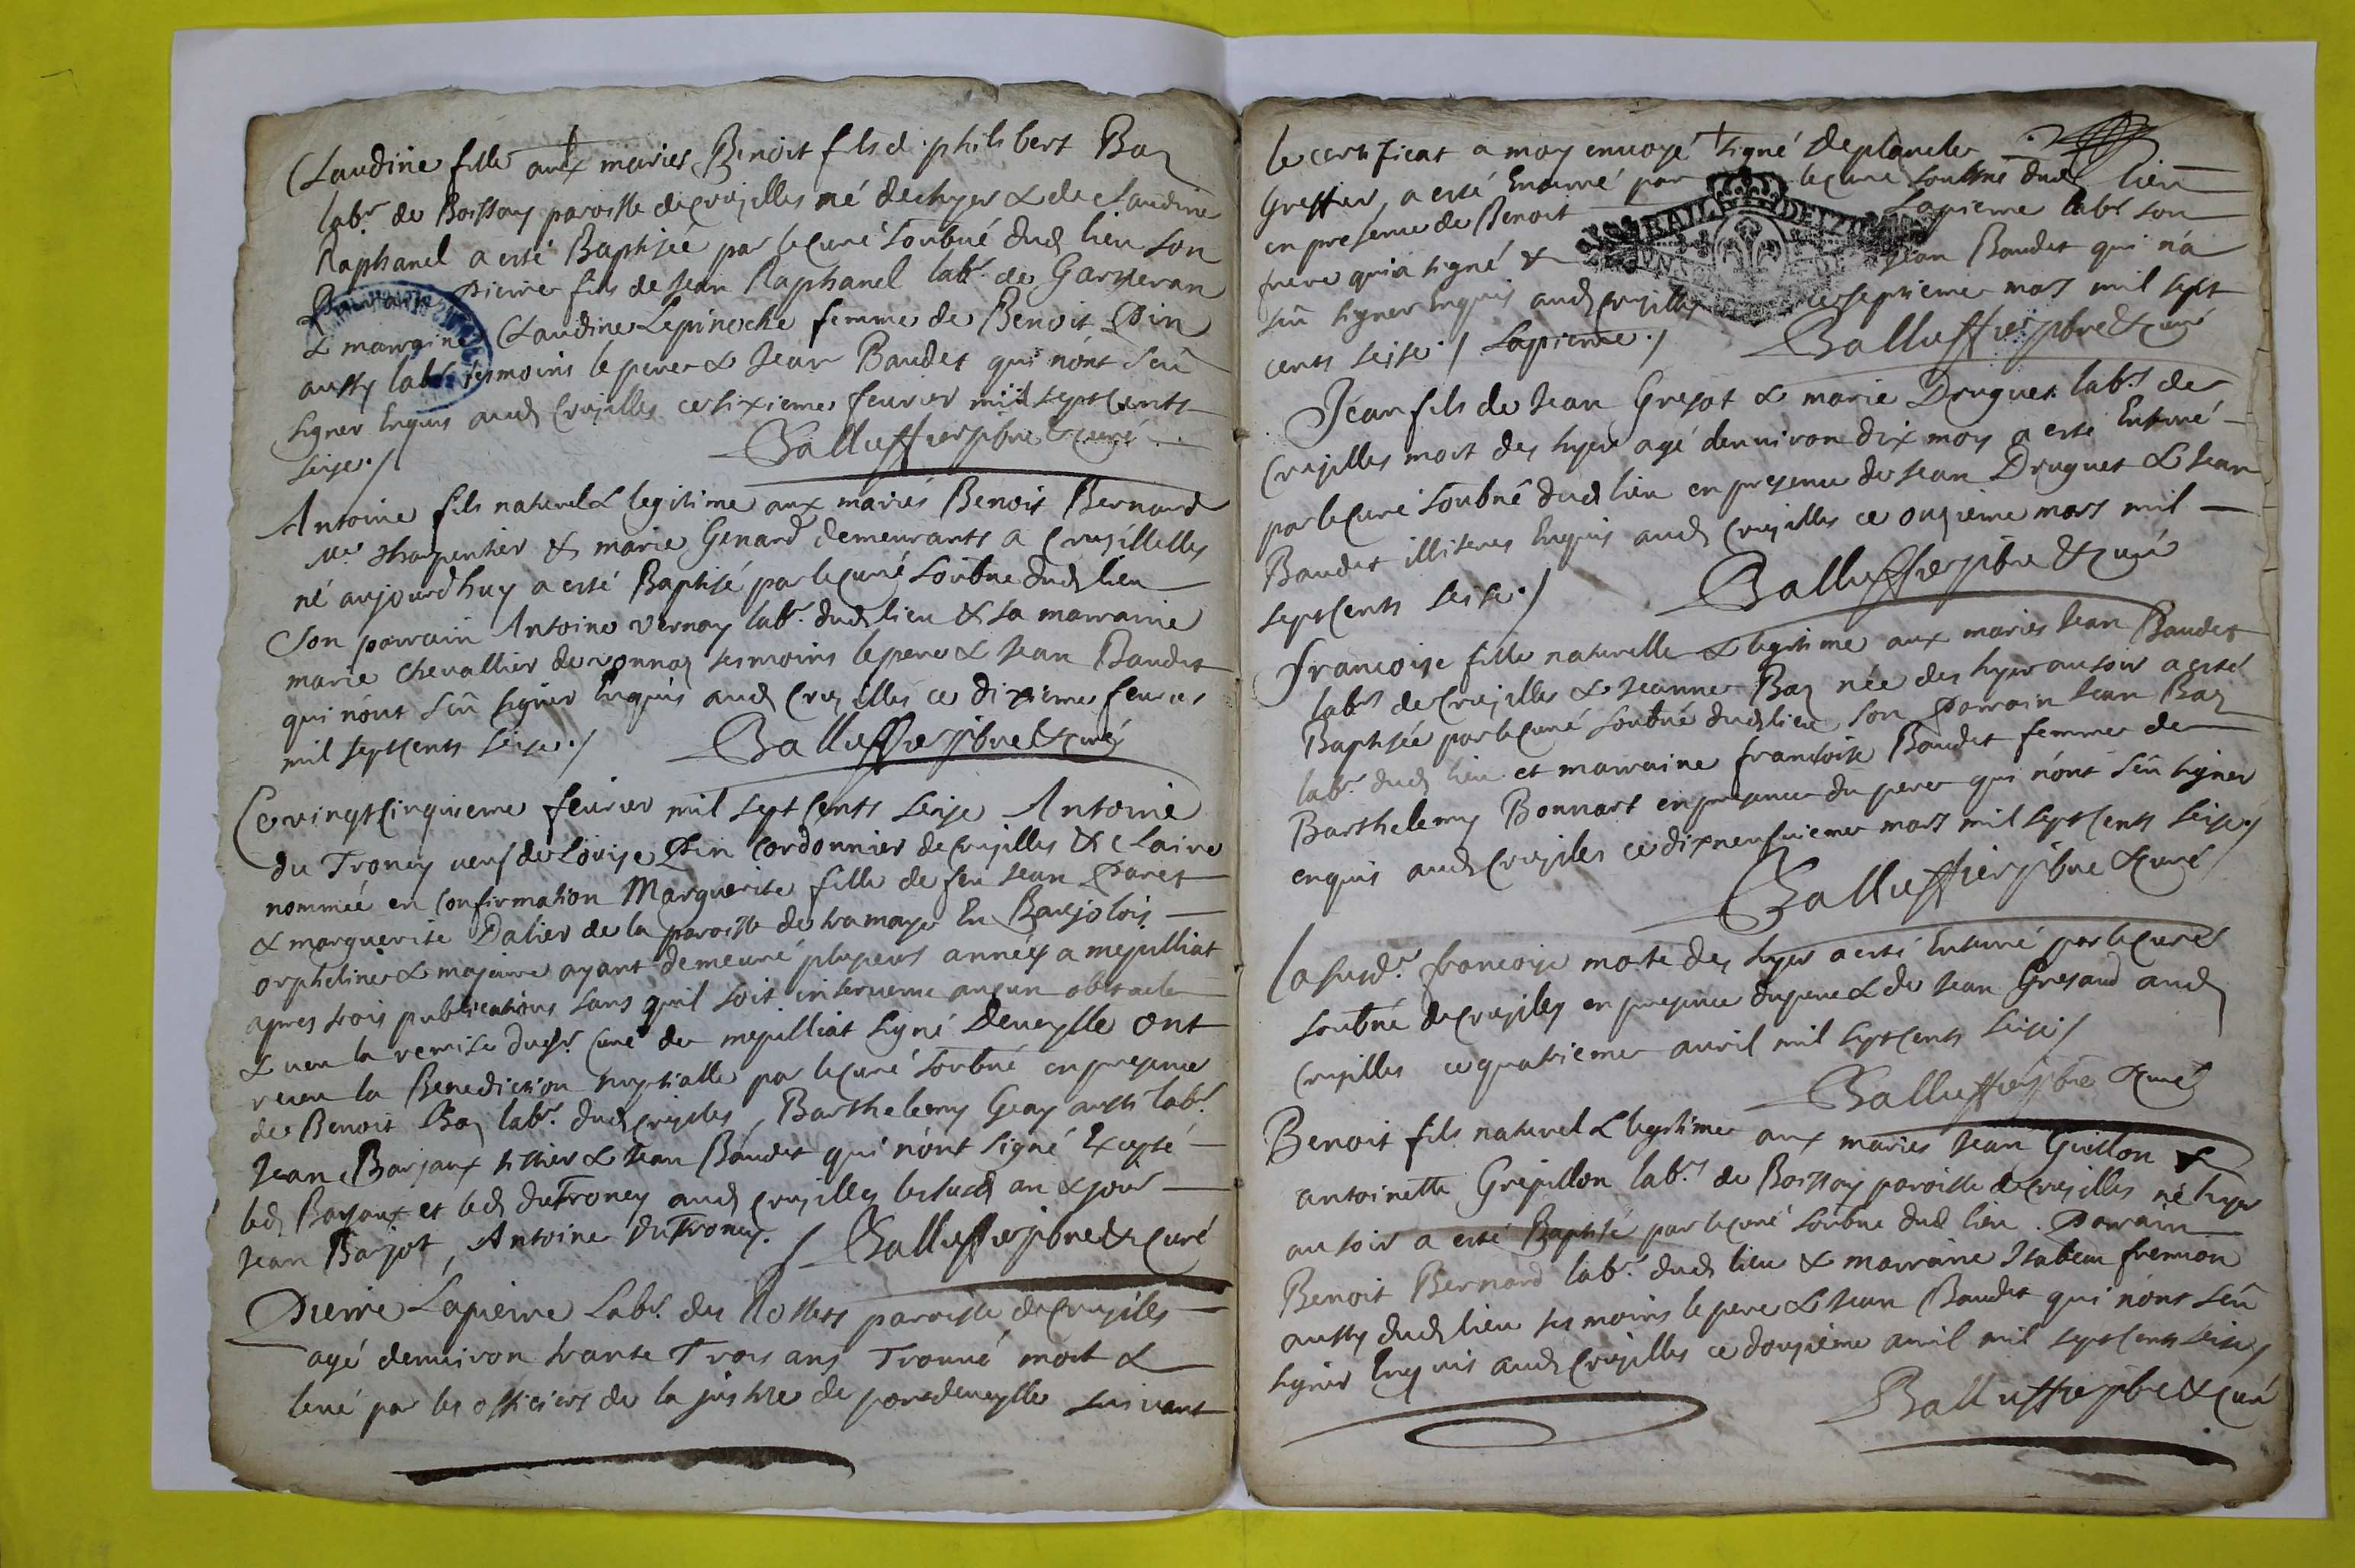 Claudine fille aux maries Benoit fils de philibert Baz
labr. de Boissay paroisse de Crujilles né de hyer & de Claudine
Raphanel a esté Baptisée par le Curé soubné dud lieu son
Parrain Pierre fils de Jean Raphanel labr. de Garneran
& marraine Claudine Lepinoche femme de Benoit Pin
aussy labr. tesmoins le pere & Jean Baudet qui n'ont sçû
signer Enquis aud Crujilles ce sixieme feurier mil sept Cents
seise ./ Balluffier pbre & curé
Antoine fils naturel & legitime aux mariés Benoit Bernard
Me. Charpentier & marie Genard demeurants a Crusillelles
né aujourd'huy a esté Baptisé par le Curé soubne dud lieu
Son parrain Antoine vernay labr. dud lieu & sa marraine
marie Chevallier de vonnaz tesmoins le pere & Jean Baudet
qui n'ont sçû signer Enquis aud Crusilles ce dixieme feurier
mil sept Cents seise ./ Balluffier pbre & curé
Ce vingt Cinquieme feurier mil sept Cents seise Antoine
du Troncy ueuf de Louise Pin Cordonnier de Crujilles & Claine
nommée en Confirmation Marguerite fille de feu Jean Paret
& marguerite Dalier de la paroisse de tramaye En Baujolois
orpheline & majeure ayant demeuré plusieurs années a mepilliat
apres trois publications sans qu'il soit interuenu aucun obstacle
& ueu la remise du sr. Curé de mepilliat signé Deueylle ont
receu la Benediction nuptialle par le Curé soubné en presence
de Benoit Baz labr. dud Crujilles, Barthelemy Geay aussi labr.
Jean Barjaux tissier & Jean Baudet qui n'ont signé Excepté
led Barjaux et led duTroncy aud Crujilles les susd an & jour
Jean Barjot, Antoine DuTroncy. / Balluffier pbre & Curé
Pierre Lapierre Labr. des Rossets paroisse de Crujilles
agé denuiron trante Trois ans Trouué mort &
leué par les officiers de la justice de pontdeueylle suiuant
le certificat a moy enuoyé signé Deplanche
Greffier, a esté Enterré par le Curé soubné dud lieu
en presence de Benoit Lapierre labr. son
frere qui a signé & Jean Baudet qui n'a
sçû signer Enquis aud Crujilles ce septieme mars mil sept
cents seise ./ Lapierre ./ Balluffier pbre & curé
Jean fils de Jean Gresot & marie Druguet labrs. de
Crujilles mort des hyer agé denuiron dix moy a esté Enterré
par le Curé soubné dud lieu en presence de Jean Druguet & Jean
Baudet illiteres Enquis aud Crujilles ce onzieme mars mil
sept Cents seise ./ Balluffier pbre & curé
francoise fille naturelle & legitime aux maries Jean Baudet
labr. de Crujilles & Jeanne Baz née des hyer au soir a esté
Baptisée par le Curé soubné dud lieu son Parrain Jean Baz
labr. dud lieu et marraine francoise Baudet femme de
Barthelemy Bonnart en presence du pere qui n'ont sçû signer
enquis aud Crujiles ce dixneufuieme mars mil sept Cents seise ./
Balluffier pbre & curé
La susde. francoise morte des hyer a esté Enterré par le Curé
soubné de Crujiles en presence du pere & de Jean Gresaud aud
Crujilles ce quatrieme auril mil sept Cents seise ./
Balluffier pbre & curé
Benoit fils naturel & legitime aux maries Jean Guillon &
antoinette Grepillon labrs. de Boissay paroisse de Crujilles né hyer
au soir a esté Baptisé par le Curé soubne dud lieu. Parrain
Benoit Bernard labr. dud lieu & marraine Isabeau fremion
aussy dud lieu tesmoins le pere & Jean Baudet qui n'ont sçû
signer Enquis aud Crujilles ce douzieme auril mil sept Cents seise /
Balluffier pbre & Curé